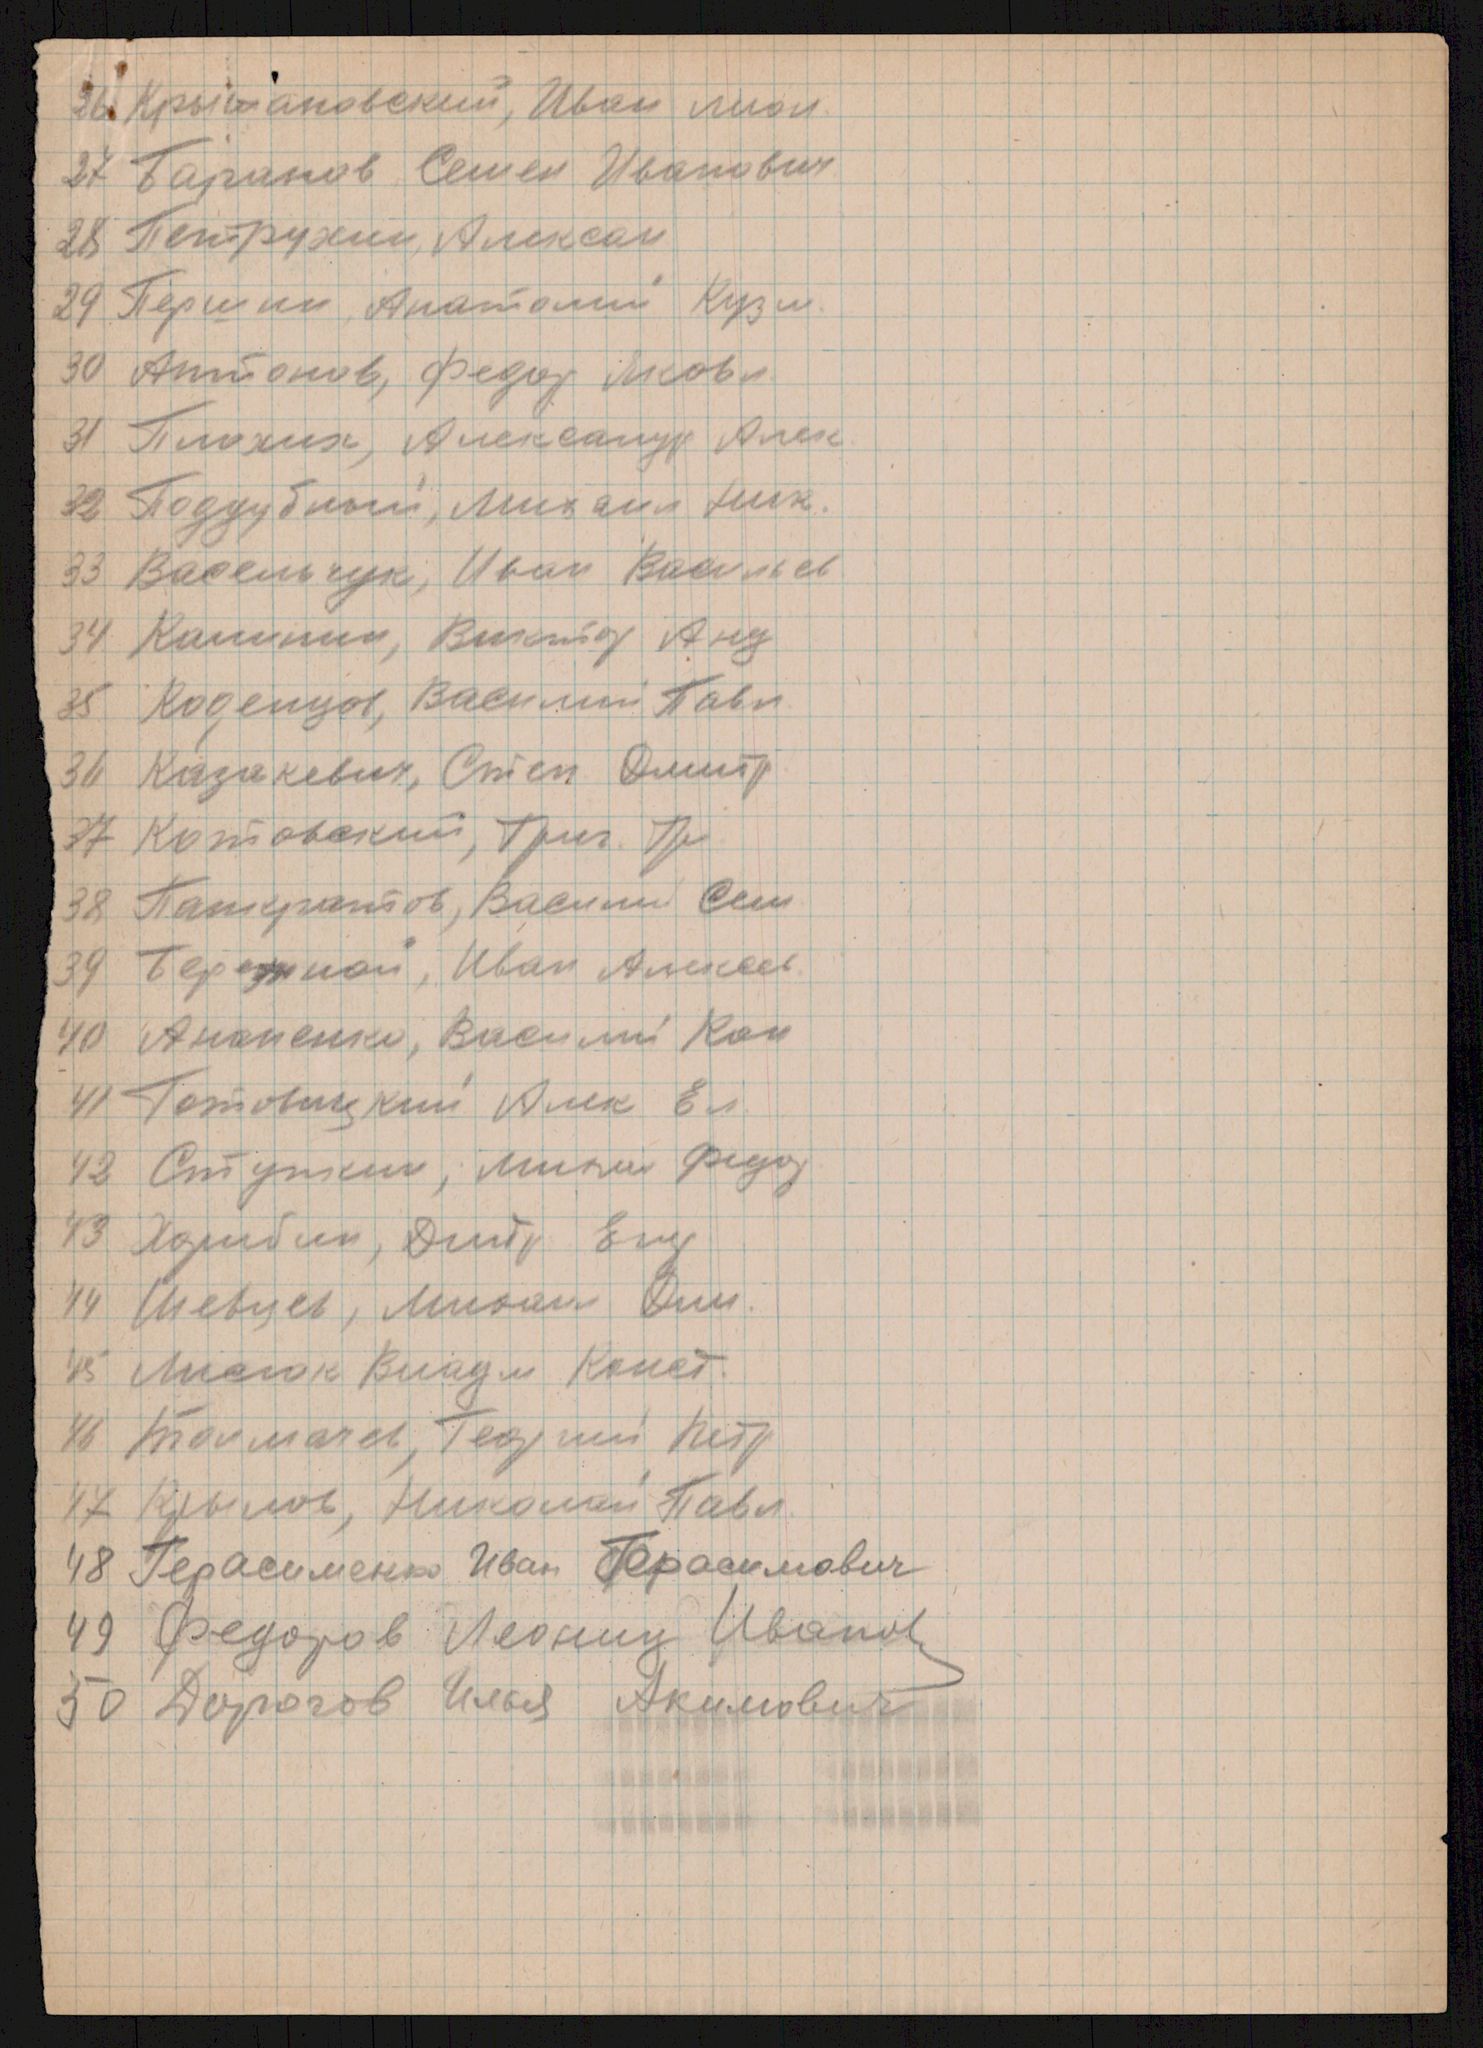 26 Крыжановский, Иван
27 Баранов Семен Иванович
28 Петрухин, Алексан
29 Першин, Анатолий Кузм.
30 Антонов, Федор Яковл.
31 Плохих, Александр Алек.
32 Поддубный, Михаил Ник.
33 Васельчук, Иван Васильев
34 Калинин, Виктор Анд
35 Коденцов, Василий Павл
36 Казакевич, Степ Дмитр
37 Котовский, Григ. Гр
38 Панкратов, Василий Сем
39 Бережной, Иван Алексеев.
40 Ананенко, Василий Кон
41 Готовицкий Алек Ел.
42 Ступкин, Михаил Федор
43 Дмитр
44 Шевцев, Михаил Дми.
45 Лисюк Владм Конст.
46 Толмачев, Георгий Петр
47 Крылов, Николай Павл.
48 Герасименко Иван Герасимович
49 Федоров Леонид Иванов
50 Дорогов Илья Акимович